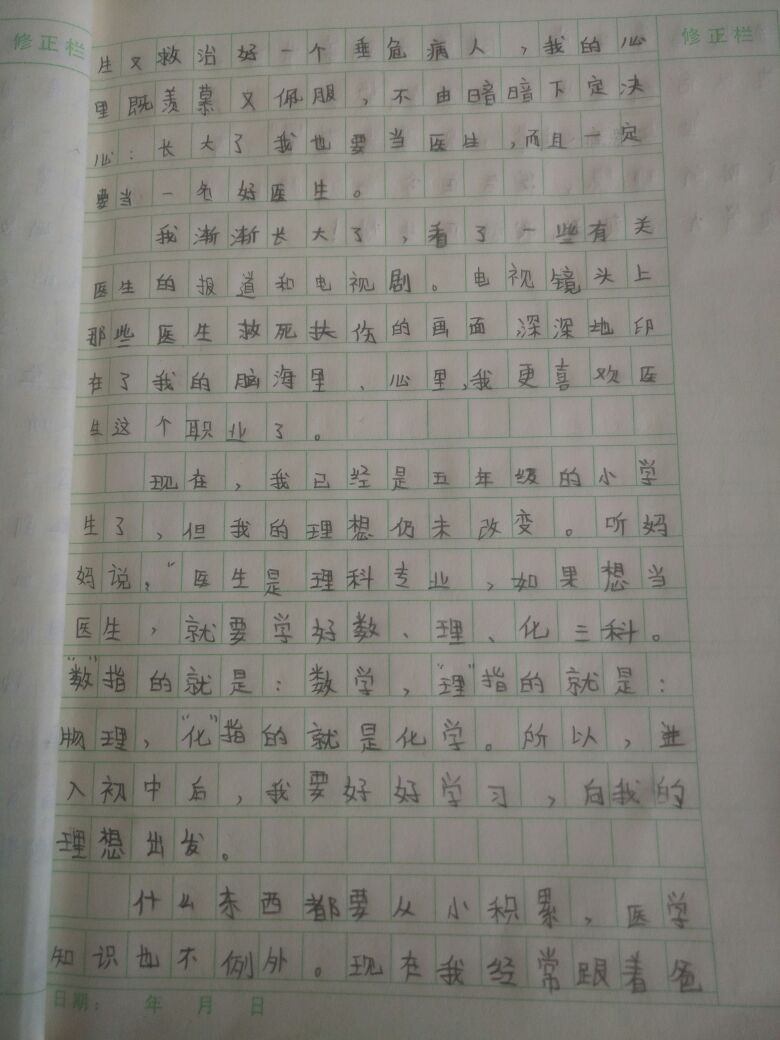 修正栏
修正栏
生又救治好一个垂危病人，我的心
里既羡慕又佩服，不由暗暗下定决
心：长大了我也要当医生，而且一定
要当一名好医生。
我渐渐长大了，看了一些有关
医生的报道和电视剧。电视镜头上
那些医生救死扶伤的画面深深地印
在了我的脑海里、心里，我更喜欢医
生这个职业了。
现在，我已经是五年级的小学
生了，但我的理想仍未改变。听妈
妈说，“医生是理科专业，如果想当
医生，就要学好数、理、化三科。
“数”指的就是：数学，“理”指的就是：
物理，“化”指的就是化学。所以，进
入初中后，我要好好学习，向我的
理想出发。
什么东西都要从小积累，医学
知识也不例外。现在我经常跟着爸
日期： 年 月 日